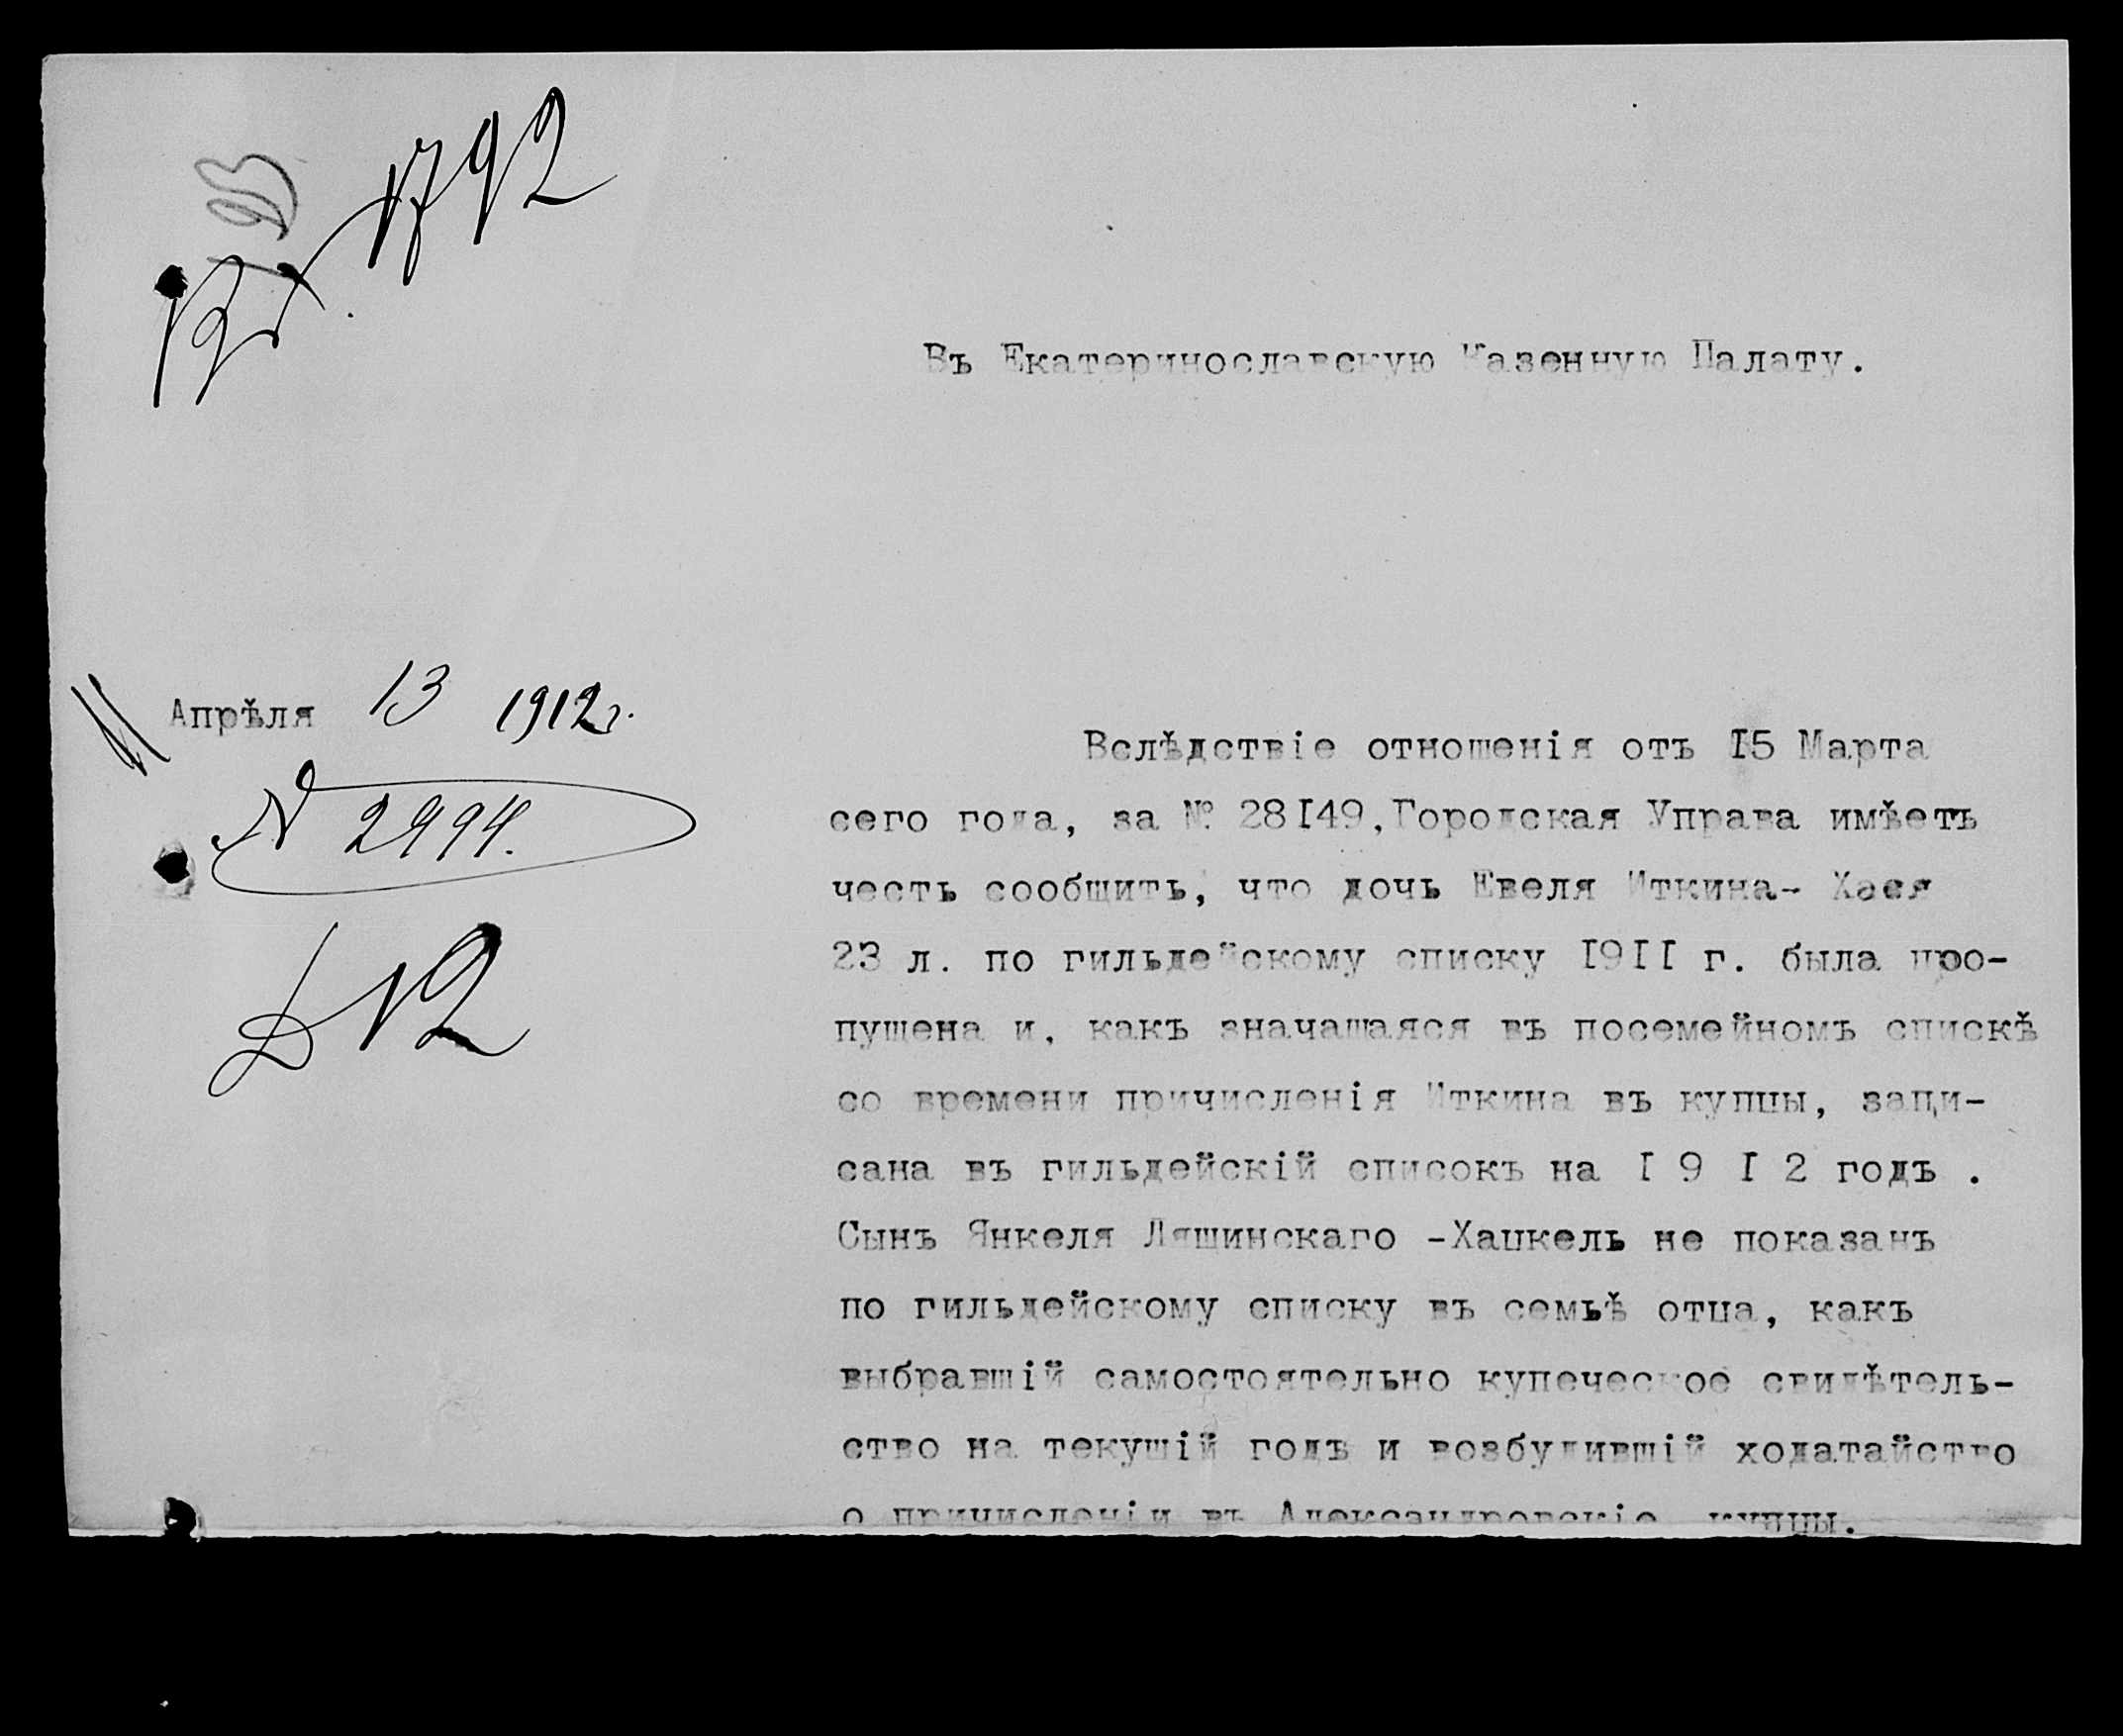 1792
Въ Екатеринославскую Казенную Палату.
Апрѣля 13 1912г.
№ 2994.
Вслѣдствіе отношенія отъ I5 Марта
сего года, за № 28I49, Городская Управа имѣетъ
честь сообщить, что дочь Евеля Иткина- Хася
23 л. по гильдейскому списку I9II г. была про-
пущена и, какъ значащаяся въ посемейномъ спискѣ
со времени причисленія Иткина въ купцы, запи-
сана въ гильдейскій списокъ на I 9 I 2 годъ .
Сынъ Янкеля Ляшинскаго -Хацкель не показанъ
по гильдейскому списку въ семьѣ отца, какъ
выбравшій самостоятельно купеческое свидѣтель-
ство на текущій годъ и возбудившій ходатайство
о причисленіи въ Александровскіе купцы.